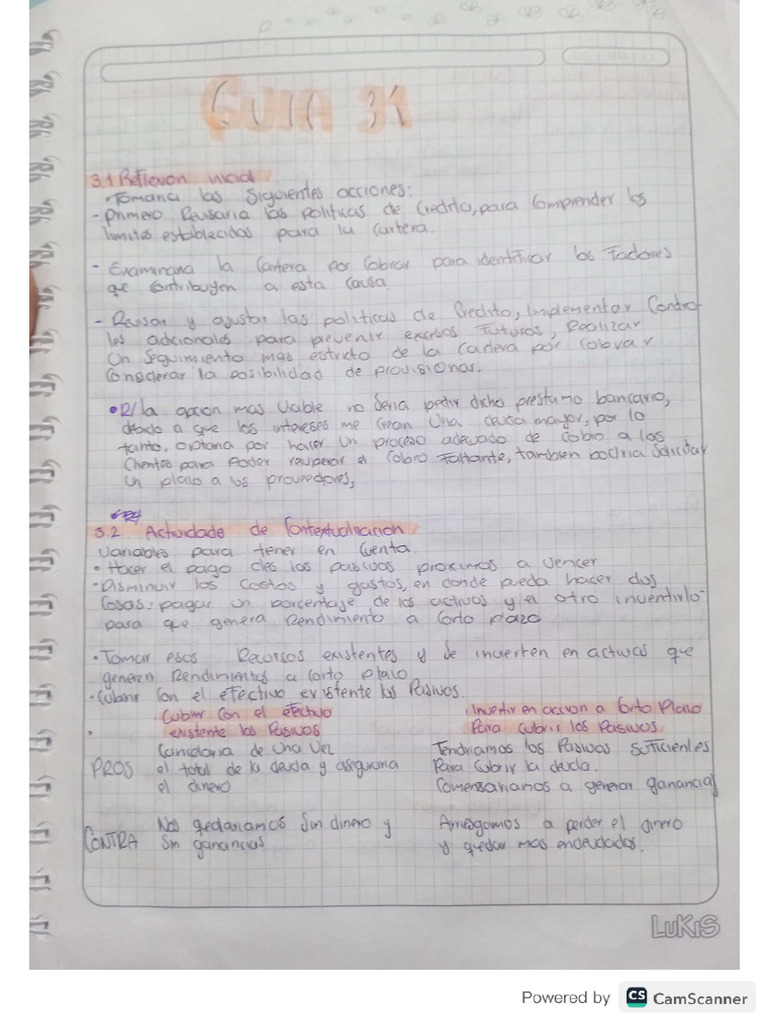 GUIA 31
3.1 Reflexion inicial
Tomaria las Siguientes acciones:
- Primero Revisaria las politicas de Credito, para Comprender los
limites establecidas para la cartera.
- Examinaria la Cartera por Cobrar para identificar los Factores
que contribuyen a esta Causa.
- Revisar y ajustar las politicas de Credito, Implementar Contro-
les adicionales para prevenir excesos Futuros, Realizar
Un Seguimiento mas estricto de la Cartera por Cobrar
Considerar la posibilidad de provisionar.
• R/ la opcion mas Viable no Seria pedir dicho prestamo bancario,
debido a que los intereses me crean Una deuda mayor, por lo
tanto, optaria por hacer Un proceso adecuado de cobro a los
Clientes para Poder recuperar el Cobro Faltante, tambien podria Solicitar
Un plazo a los proveedores,
3.2 Actividade de Contextualizacion
Variables para tener en Cuenta
• Hacer el pago des los pasivos proximos a vencer
- Disminuir los Costos y gastos, en donde pueda hacer dos
Cosas: pagar un porcentaje de los activos y el otro inventirlo
para que genera Rendimiento a Corto plazo
• Tomar esos Recursos existentes y se invierten en activos que
generen Rendimientos a Corto plazo
- Cubrir Con el efectivo existente los Pasivos.
Cubrir Con el efectivo Invertir en accion a Corto Plazo
existente los Pasivos Para Cubrir los Pasivos
Cancelaria de Una Vez Tendriamos los Pasivos Suficientes
PROS el total de la deuda y asiguraria Para Cubrir la deuda.
el dinero Comensariamos a generar ganancias
Nos quedariamos Sin dinero y Arriesgamos a perder el dinero
CONTRA Sin ganancias y quedar mas endeudados.
LUKIS
Powered by CS CamScanner